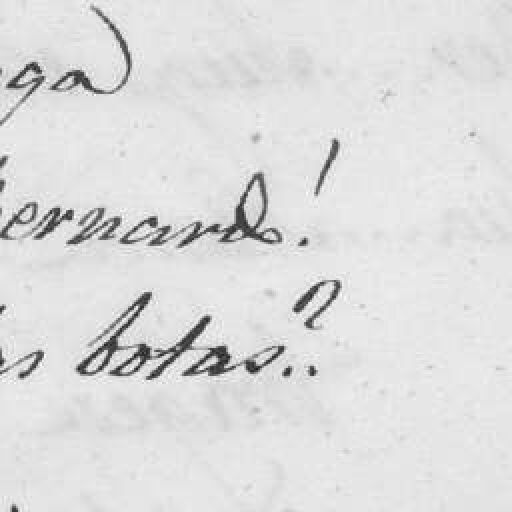 ga)
ernardo!
s botas..?